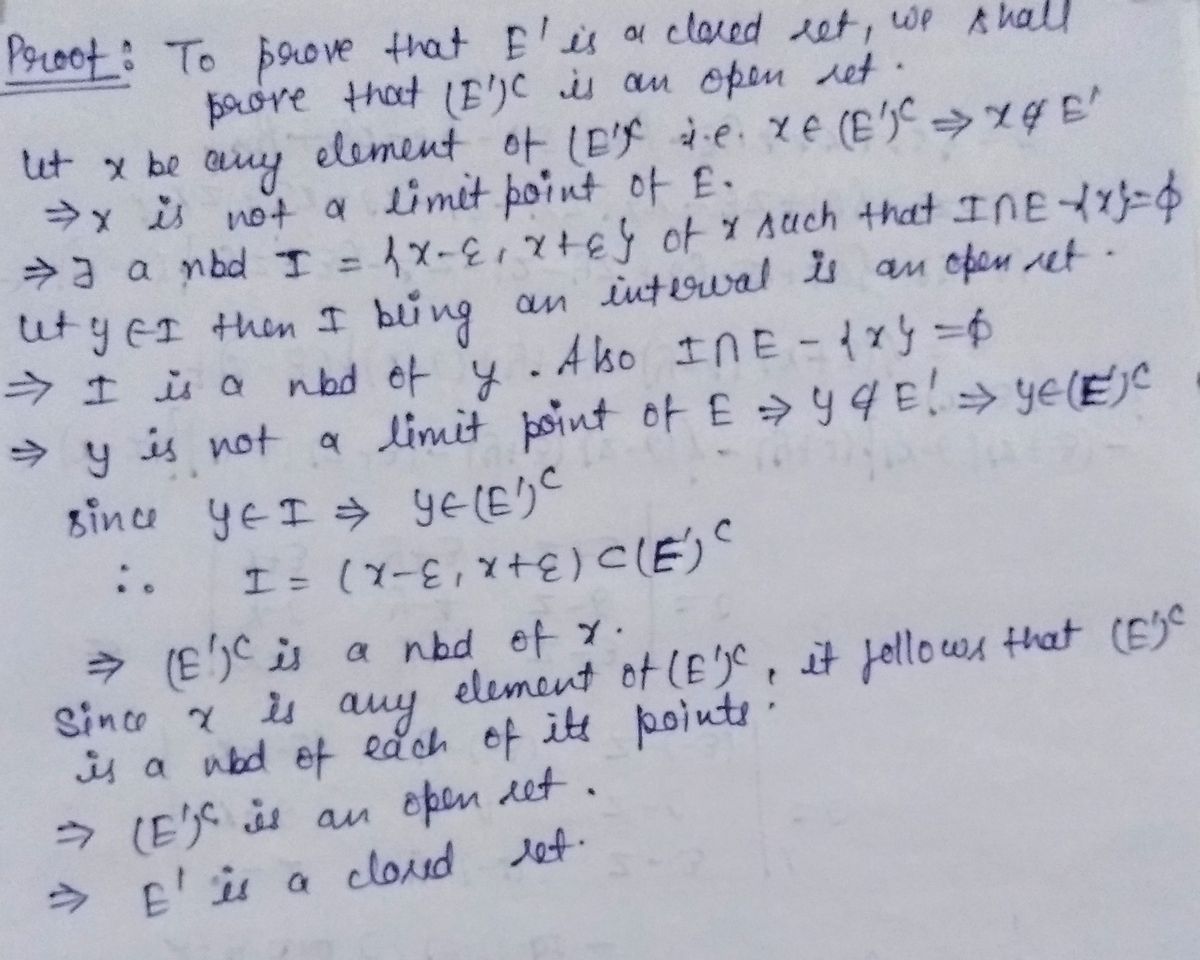 Proof: To prove that E' is a closed set, we shall
prove that (E')ᶜ is an open set.
let x be any element of (E')ᶜ i.e. x ∈ (E')ᶜ ⇒ x ∉ E'
⇒ x is not a limit point of E.
⇒ ∃ a nbd I = {x-ε, x+ε} of x such that I∩E-{x}=ϕ
let y ∈ I then I being an interval is an open set.
⇒ I is a nbd of y. Also I∩E-{x}=ϕ
⇒ y is not a limit point of E ⇒ y ∉ E'. ⇒ y∈(E')ᶜ
since y∈I ⇒ y∈(E')ᶜ
∴ I = (x-ε, x+ε) ⊂ (E')ᶜ
⇒ (E')ᶜ is a nbd of x.
Since x is any element of (E')ᶜ, it follows that (E')ᶜ
is a nbd of each of its points.
⇒ (E')ᶜ is an open set.
⇒ E' is a closed set.